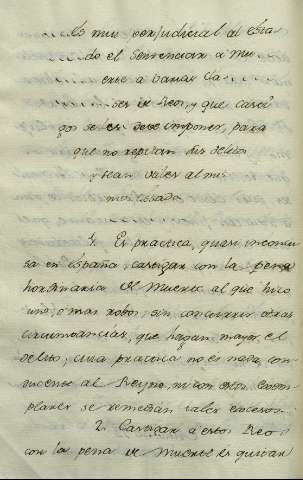 Es mui perjudicial al esta-
do el Sentenciar a mu-
erte a varias Cla-
ses de Reos, y que casti-
gos se les deve imponer, para
que no repitan sus delitos
y sean utiles al mis-
mo estado.
1. Es practica, quasi inconcu-
sa en España, castigar con la pena
hordinaria de Muerte al que hizo
uno, o mas robos, sin concurrir otras
circunstancias, que hagan mayor el
delito, cuia practica no es nada con-
veniente al Reyno, ni con estos exem-
plares se remedian tales excesos.
2. Castigar a estos Reos
con la pena de Muerte es quitar